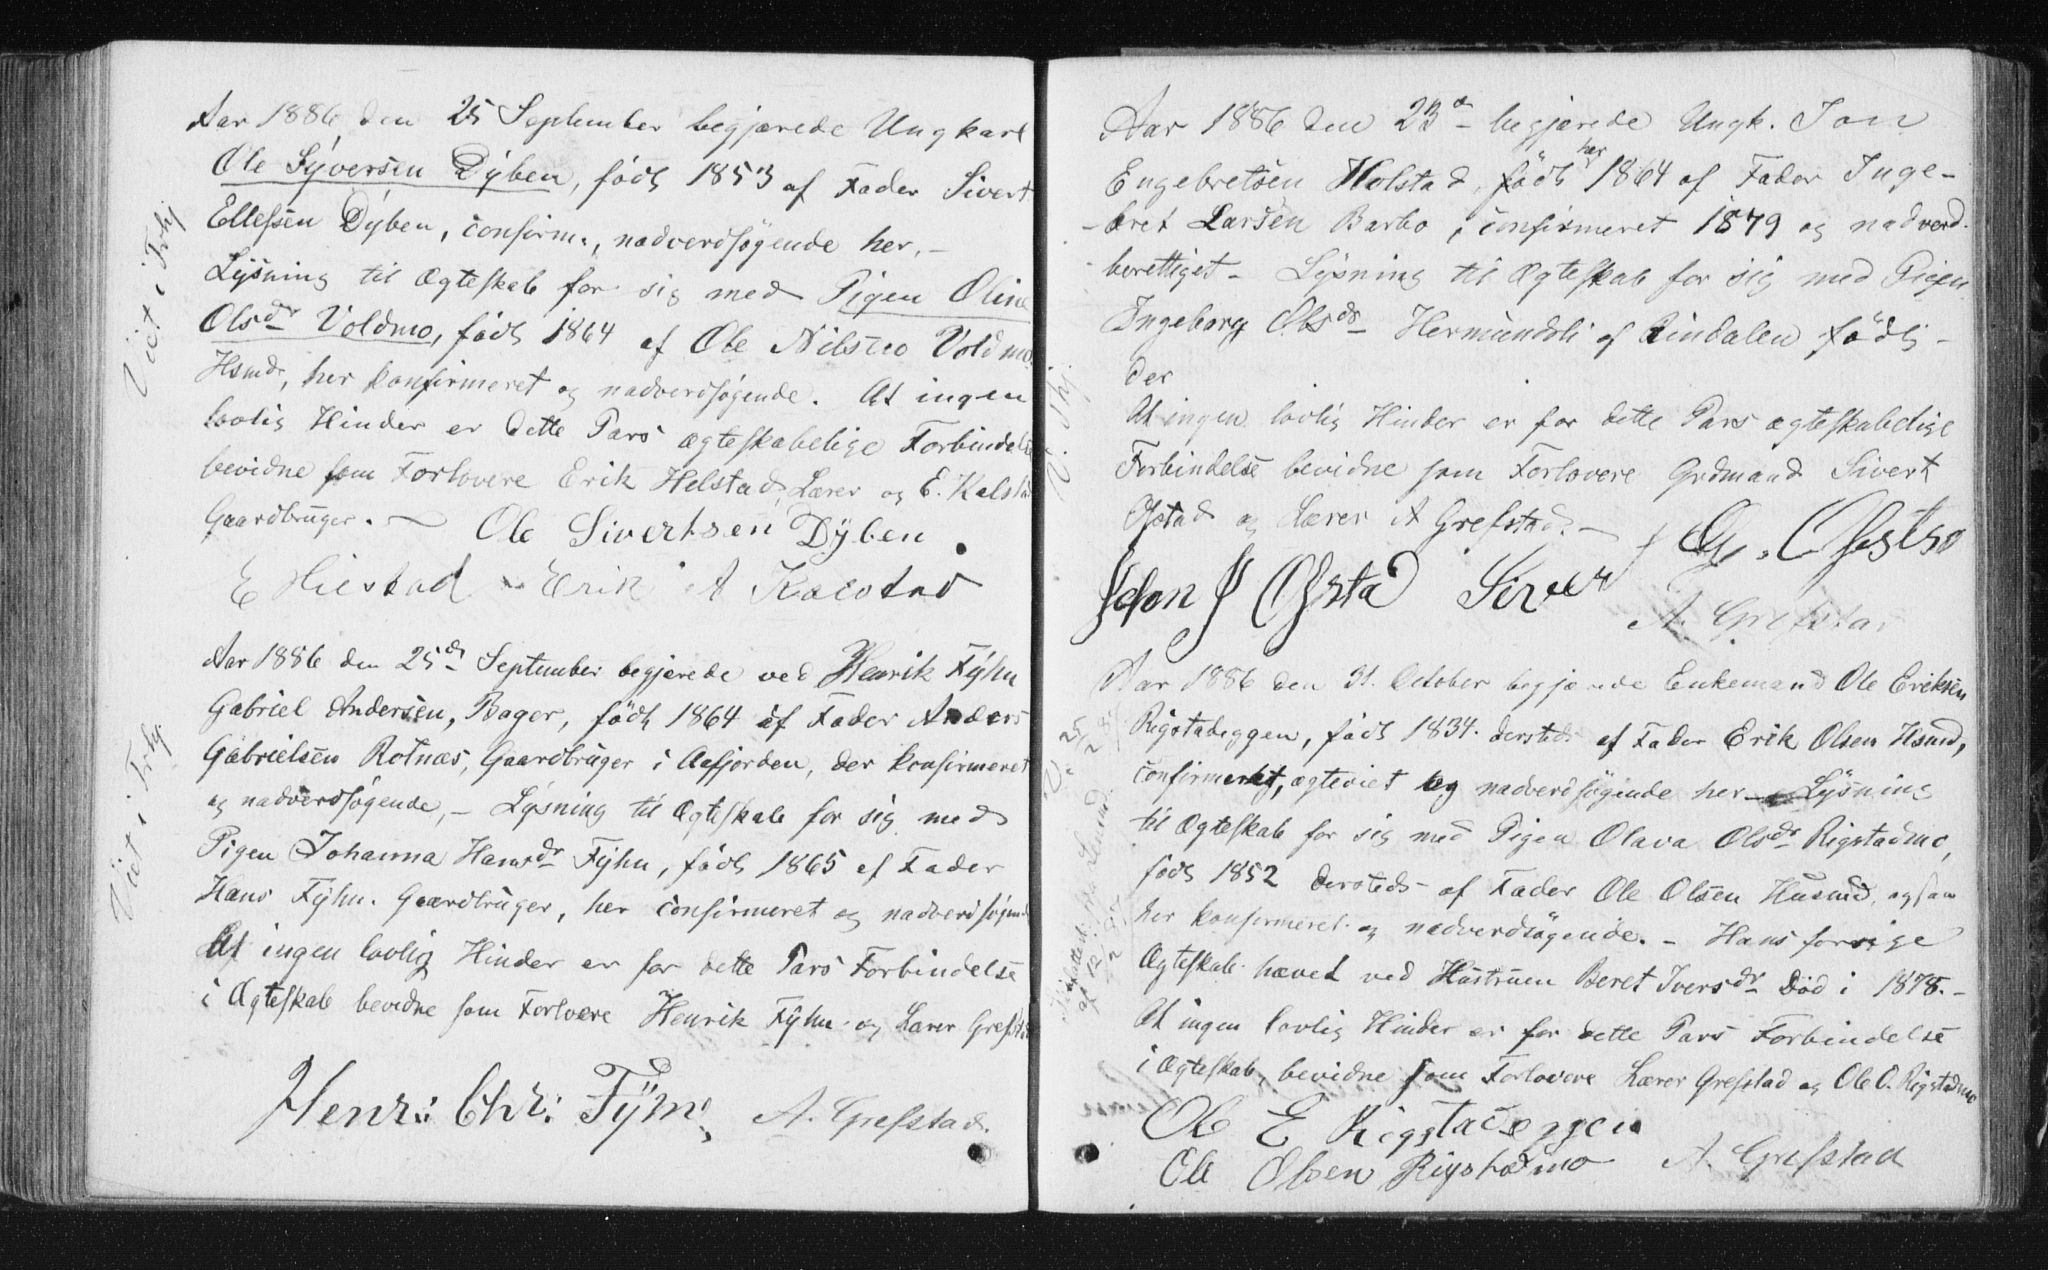 Aar 1886 den 25 September begjærede Ungkarl
Ole Syversen Dyben, födt 1853 af Fader Sivert
Ellefsen Dyben, confirm., nadverdsøgende her, –
Lysning til Ægteskab for sig med Pigen Oline
Olsdr Voldmo, födt 1864 af Ole Nilsen Voldmo
Hsmd, her konfirmeret og nadverdsøgende. At ingen
lovlig Hinder er dette Pars ægteskabelige Forbindelse
bevidne som Forlovere Erik Helstad, Lærer og E. Kalstad
Gaardbruger. – Ole Sivertsen Dyben
E Hielstad Erik A Kalstad
Viet i Trhj
Aar 1886 den 25de September begjærede ved Henrik Fyhn
Gabriel Andersen, Bager, födt 1864 af Fader Anders
Gabrielsen Rotnæs, Gaardbruger i Aafjorden, der konfirmeret
og nadverdsøgende, – Lysning til Ægteskab for sig med
Pigen Johanna Hansdr Fyhn, födt 1865 af Fader
Hans Fyhn. Gaardbruger, her confirmeret og nadverdsøgende
At ingen lovlig Hinder er for dette Pars Forbindelse
i Ægteskab bevidne som Forlovere Henrik Fyhn og Lærer Grefstad
Henr: Chr: Fyhn A. Grefstad.
Viet i Trhj.
Aar 1886 den 23d – begjærede Ungk. Jon
Engebretsen Holstad, födt her 1864 af Fader Inge-
-bret Larsen Barbo, confirmeret 1879 og nadverd-
berettiget – Lysning til Ægteskab for sig med Pigen
Ingeborg Olsdr Hermundsli af Rindalen födt –
der
At ingen lovlig Hinder er for dette Pars ægteskabelige
Forbindelse bevidne som Forlovere Grdmand Sivert
Ofstad og Lærer A Grefstad. –
John J Ofstad Siver G. Ofstad
A. Grefstad
V. Thj.
Aar 1886 den 31. October begjærede Enkemand Ole Eriksen
Rigstadeggen, födt 1834. dersteds af Fader Erik Olsen Hsmd,
confirmeret, ægteviet og nadverdsøgende her – Lysning
til Ægteskab for sig med Pigen Olava Olsdr Rigstadmo,
födt 1852 dersteds – af Fader Ole Olsen Husmd, ogsaa
her konfirmeret og nadverdsøgende. – Hans forrige
Ægteskab hævet ved Hustruen Beret Iversdr Död i 1878. –
At ingen lovlig Hinder er for dette Pars Forbindelse
i Ægteskab, bevidne som Forlovere Lærer Grefstad og Ole O. Rigstadmo
Ole E Rigstadeggen
Ole Olsen Rigstadmo A. Grefstad